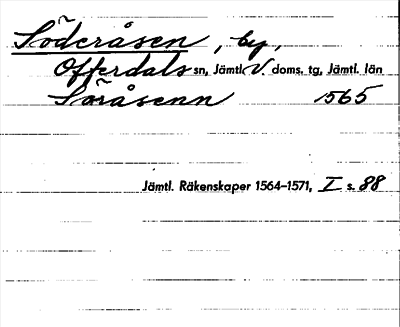 Söderåsen, by,
Offerdals sn, Jämtl. V. doms. tg, Jämtl. län
Söråsenn 1565
Jämtl. Räkenskaper 1564-1571, I s. 88